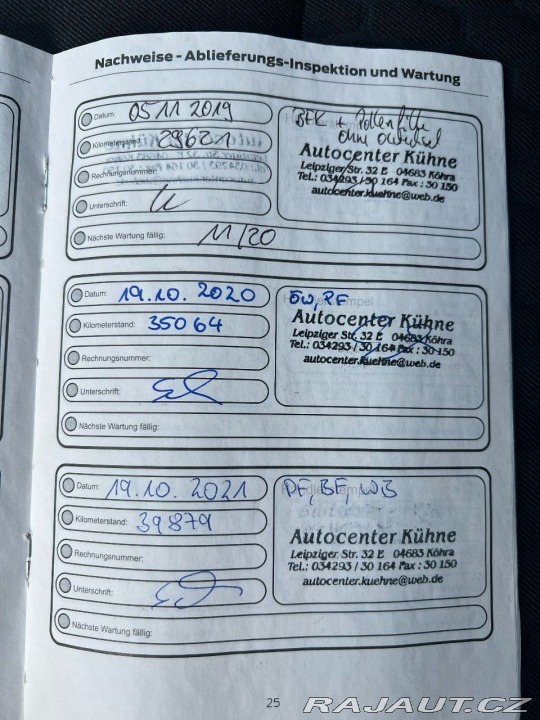 Nachweise - Ablieferungs-Inspektion und Wartung
Datum: 05 11 2019
Kilometerstand: 29621
Rechnungsnummer:
Unterschrift:
Nächste Wartung fällig: 11/20
ohne
Autocenter Kühne
Leipziger Str. 32 E 04683 Köhra
Tel.: 034293 / 30 164 Fax : 30 150
autocenter.kuehne@web.de
Datum: 19.10.2020
Kilometerstand: 35064
Rechnungsnummer:
Unterschrift:
Nächste Wartung fällig:
ÖW, PF
Autocenter Kühne
Leipziger Str. 32 E 04683 Köhra
Tel.: 034293 / 30 164 Fax : 30 150
autocenter.kuehne@web.de
Datum: 19.10.2021
Kilometerstand: 39879
Rechnungsnummer:
Unterschrift:
Nächste Wartung fällig:
PF, BF, WB
Autocenter Kühne
Leipziger Str. 32 E 04683 Köhra
Tel.: 034293 / 30 164 Fax : 30 150
autocenter.kuehne@web.de
25
RAJAUT.CZ